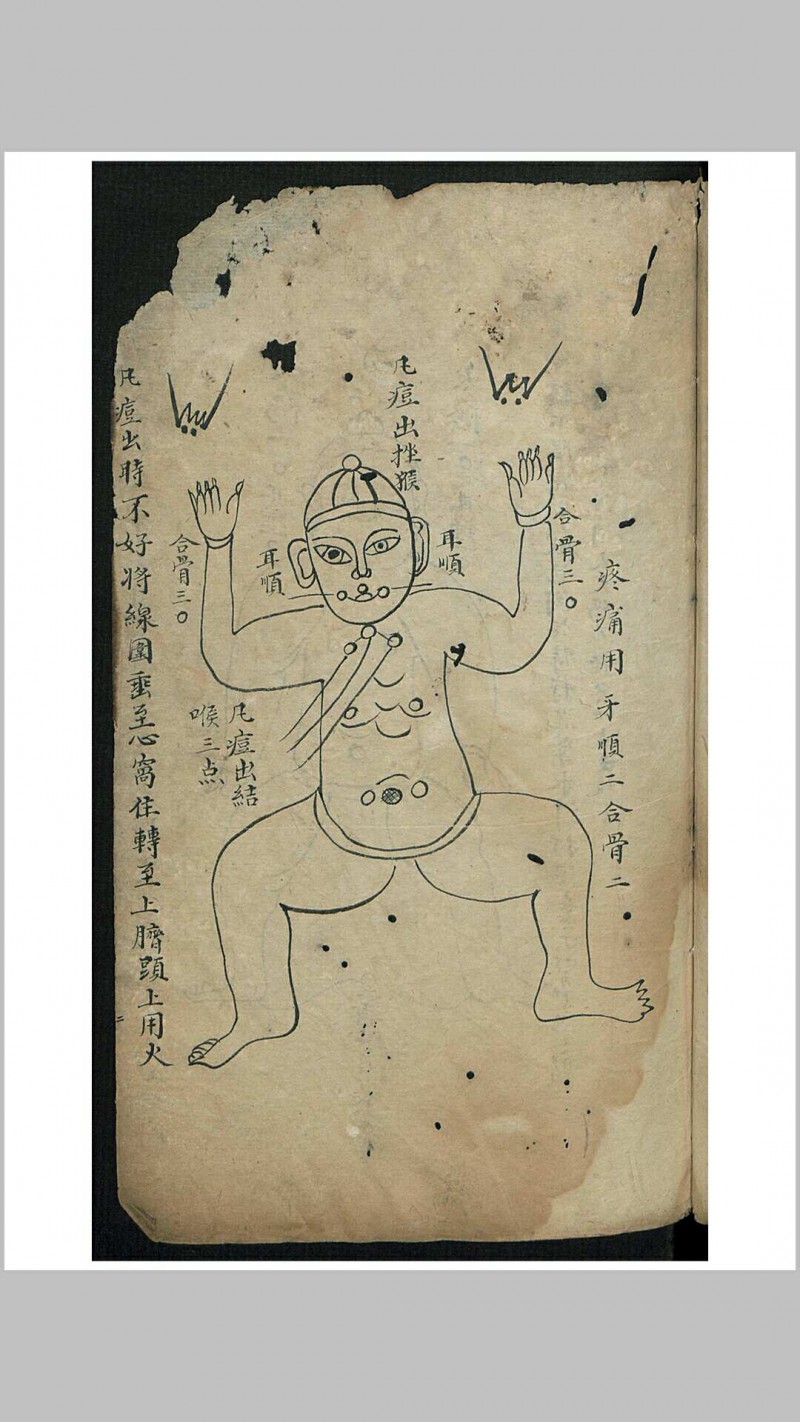 疼痛用牙順二合骨二
合骨三〇
耳順
凡痘出挫猴
耳順
凡痘出結
喉三点
合骨三〇
凡痘出時不好将線圍垂至心窩住轉至上臍頭上用火